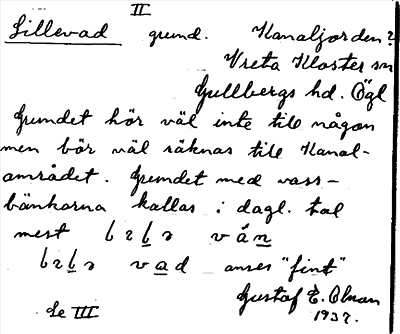 II
Lillevad grund. Kanaljorden?
Vreta Kloster sn
Gullbergs hd. Ögl
Grundet hör väl inte till någon
men bör väl räknas till Kanal-
området. Grundet med vass-
bänkarna kallas i dagl. tal
mest
vad anses "fint"
Gustaf E. Olman
Se III 1937.